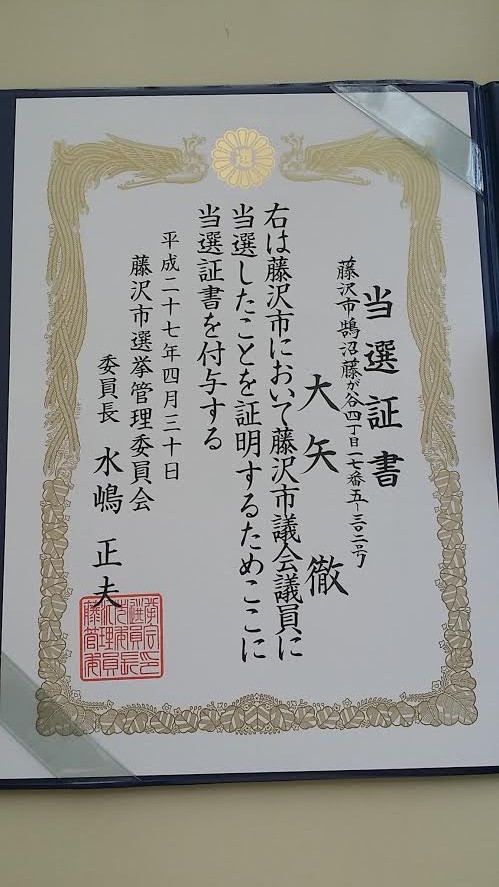 選
当選証書
藤沢市鵠沼藤が谷四丁目一七番五-三〇二号
大矢 徹
右は藤沢市において藤沢市議会議員に
当選したことを証明するためここに
当選証書を付与する
平成二十七年四月三十日
藤沢市選挙管理委員会
委員長 水嶋 正夫
藤沢市選挙管理委員会委員長印